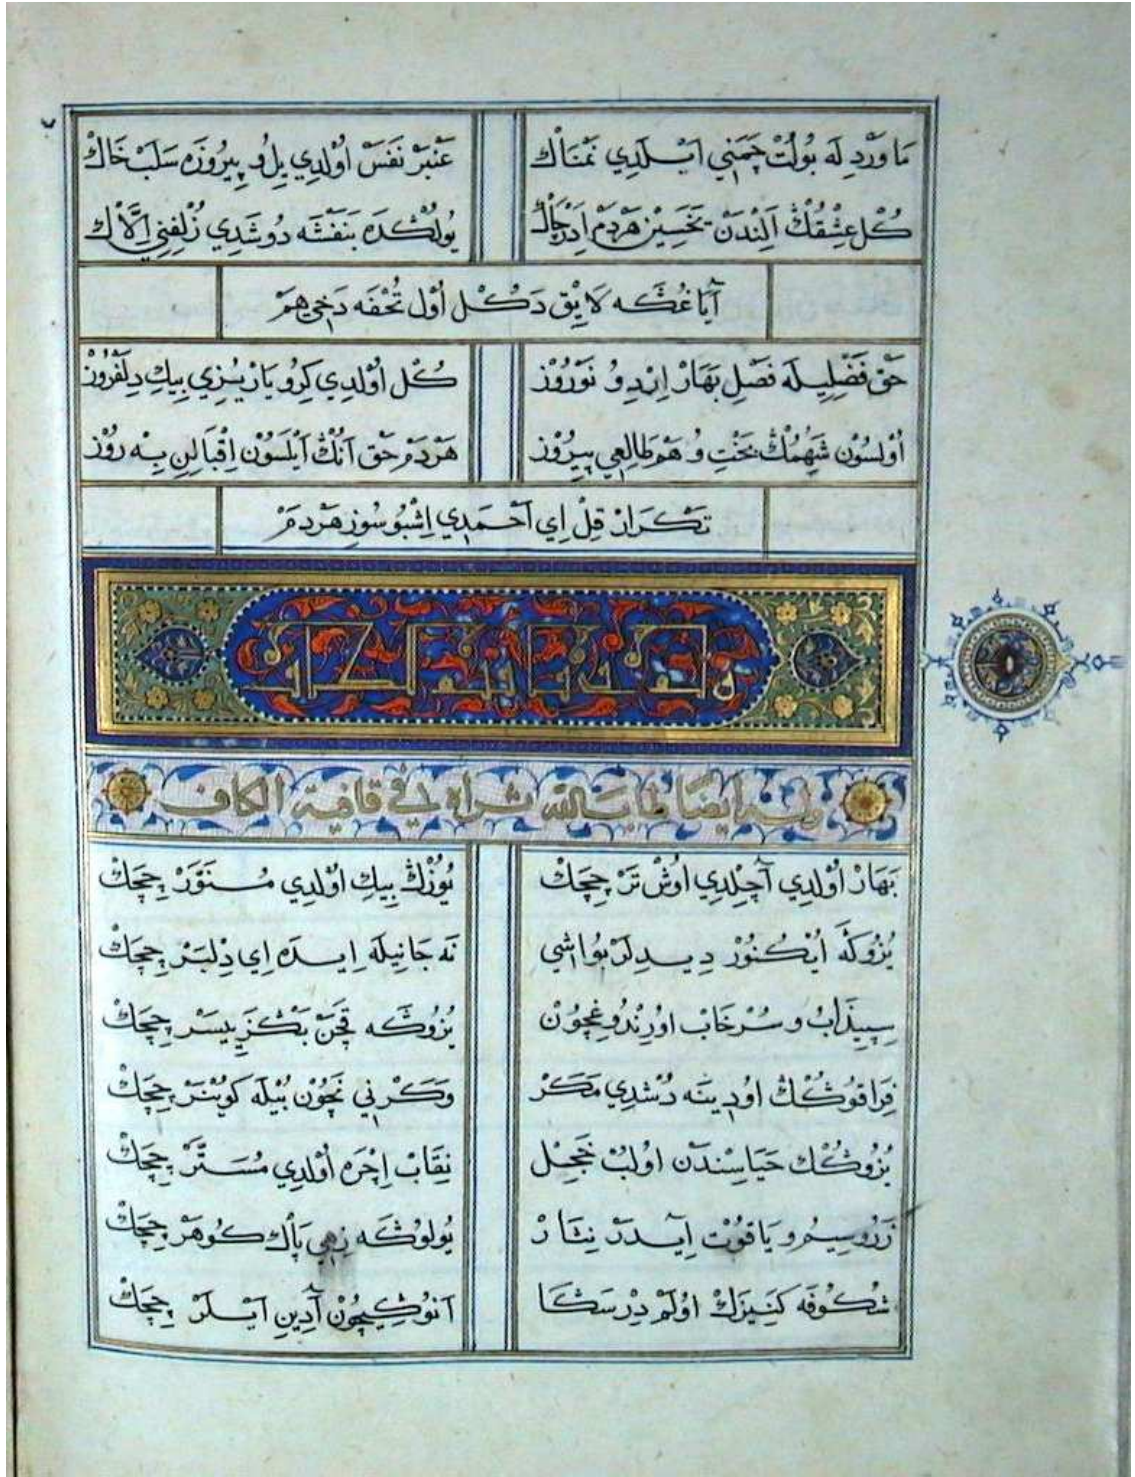 مَا وَرْدِ لَه بُولُتْ چَمَنِي اَيْلَدِي نَمْنَاكْ عَنْبَرْ نَفَسْ اُوْلْدِي يِلُ و پِيرُوزَه سَلَبْ خَاكْ
كُلْ عِشْقُكْ اَلِنْدَنْ يَخَسِينْ هَرْدَمْ اِدَرْ چَاكْ يُولُكْدَه بَنَفْشَه دُوشَدِي زُلْفِنِي
آيَا غُكَه لَا يِقْ دَكُلْ اُوْل تُحْفَه دَخِي هَمْ
حَقْ فَضْلِيلَه فَصْلِ بَهَارْ اِرْدِ وُ نَوْرُوْز كُلْ اُوْلْدِي كِرُو يَارْ يُزِي بِيكِ دِلَفْرُوْزْ
اُوْلسُوْن شَهِمُكْ بَخْتِ وُ هَمْ طَالِعِي پِيرُوْز هَرْدَمْ حَقْ اَنُكْ اَيْلَسُوْن اِقْبَالِنِ بِه رُوْز
تَكْرَارْ قِلْ اِي اَحْمَدِي اِشْبُو سُوزِ هَرْدَمْ
وله ايضا طاب الله ثراه في قافية الكاف
بَهَارْ اُوْلْدِي آچِلْدِي اُوشْ تَرْ چِچَكْ يُوزُكْ بِيكِ اُوْلْدِي مُنَوَّرْ چِچَكْ
يُزُوكَه اُيْكُنُوْر دِيدِلَرْ بُو اشِي نَه جَانِيلَه اِيدَه اِي دِلْبَرْ چِچَكْ
سِپِيدَابُ و سُرْخَابْ اُورُنْدُوغِچُوْن يُزُوكَه قَچَنْ بَكْزَيِيسَرْ چِچَكْ
فِرَاقُوكُكْ اُودِينَه دُشْدِي مَكَرْ وَكَرْنِي نَچُوْن بُيْلَه كُويْنَرْ چِچَكْ
يُزُوكُكْ حَيَاسِنْدَنْ اُولُبْ خَجِلْ نِقَابْ اِچْرَه اُوْلْدِي مُسَتَّرْ چِچَكْ
زَرُ وسِيمُ و يَاقُوْت اِيدَرْ نِثَارْ يُولُوكَه زِهِي پَاكْ كُوهَرْ چِچَكْ
شُكُوفَه كَنِيزَكْ اُولَمْ دِرْ سَكَا اَنُوكِيچُوْن آدِينِ اَيْلَرْ چِچَكْ